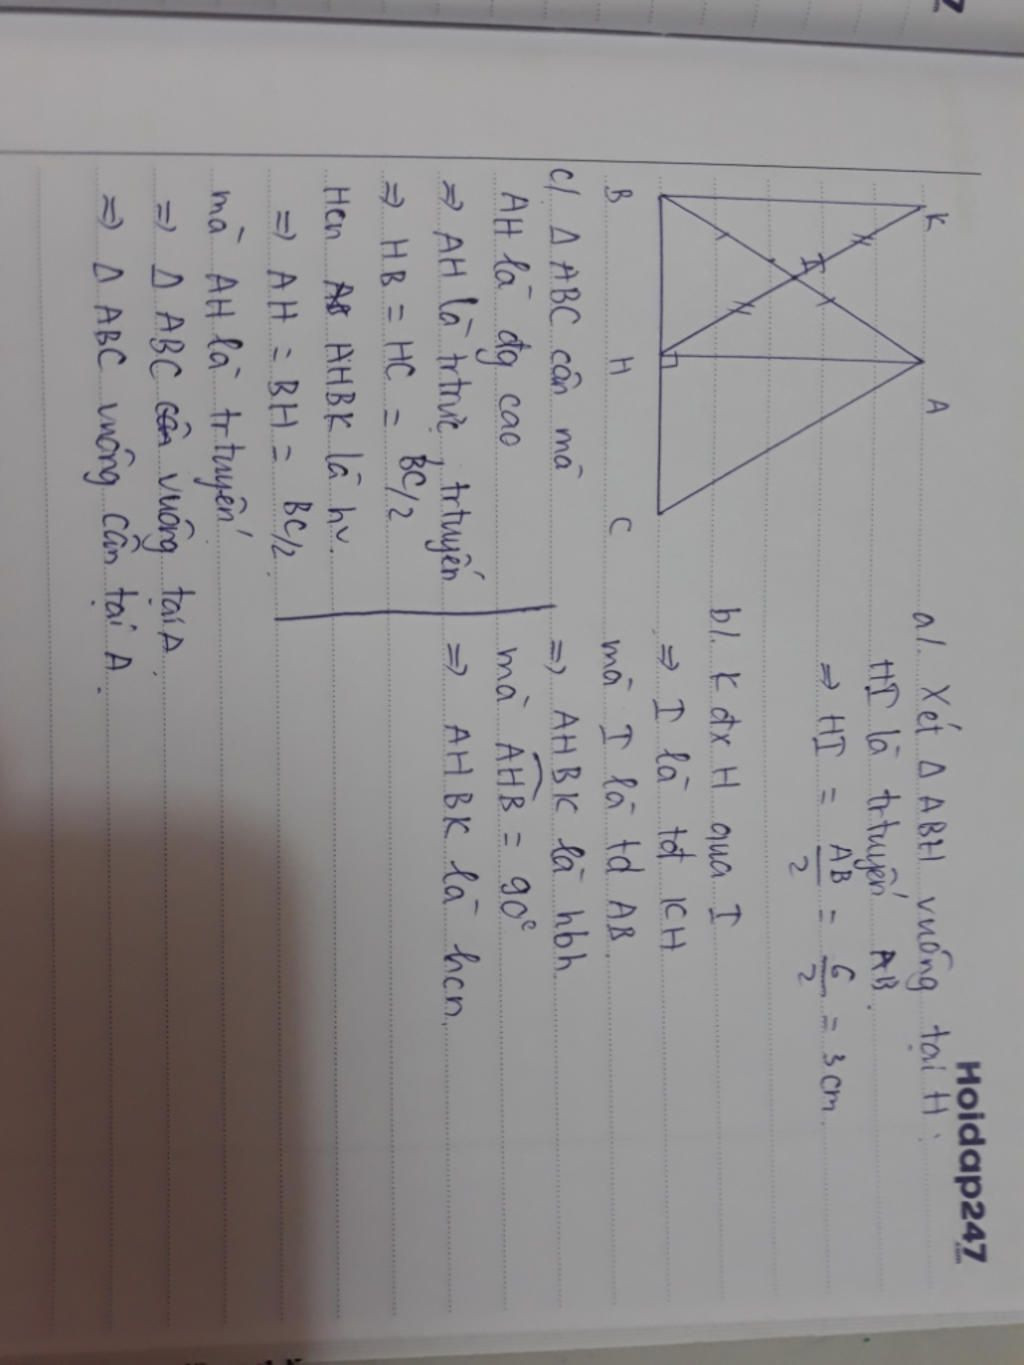 Hoidap247
.com
K
A
I
B
H
C
a/. Xét Δ ABH vuông tại H:
HI là trtuyến AB.
=> HI = AB/2 = 6/2 = 3cm.
b/. K đx H qua I
=> I là tđ KH
mà I là td AB.
=> AHBK là hbh.
mà AHB = 90°
=> AHBK là hcn.
c/. Δ ABC cân mà
AH là đg cao
=> AH là trtrực, trtuyến
=> HB = HC = BC/2
Hcn AHBK là hv.
=> AH = BH = BC/2.
mà AH là trtuyến.
=> Δ ABC vuông tại A.
=> Δ ABC vuông cân tại A.